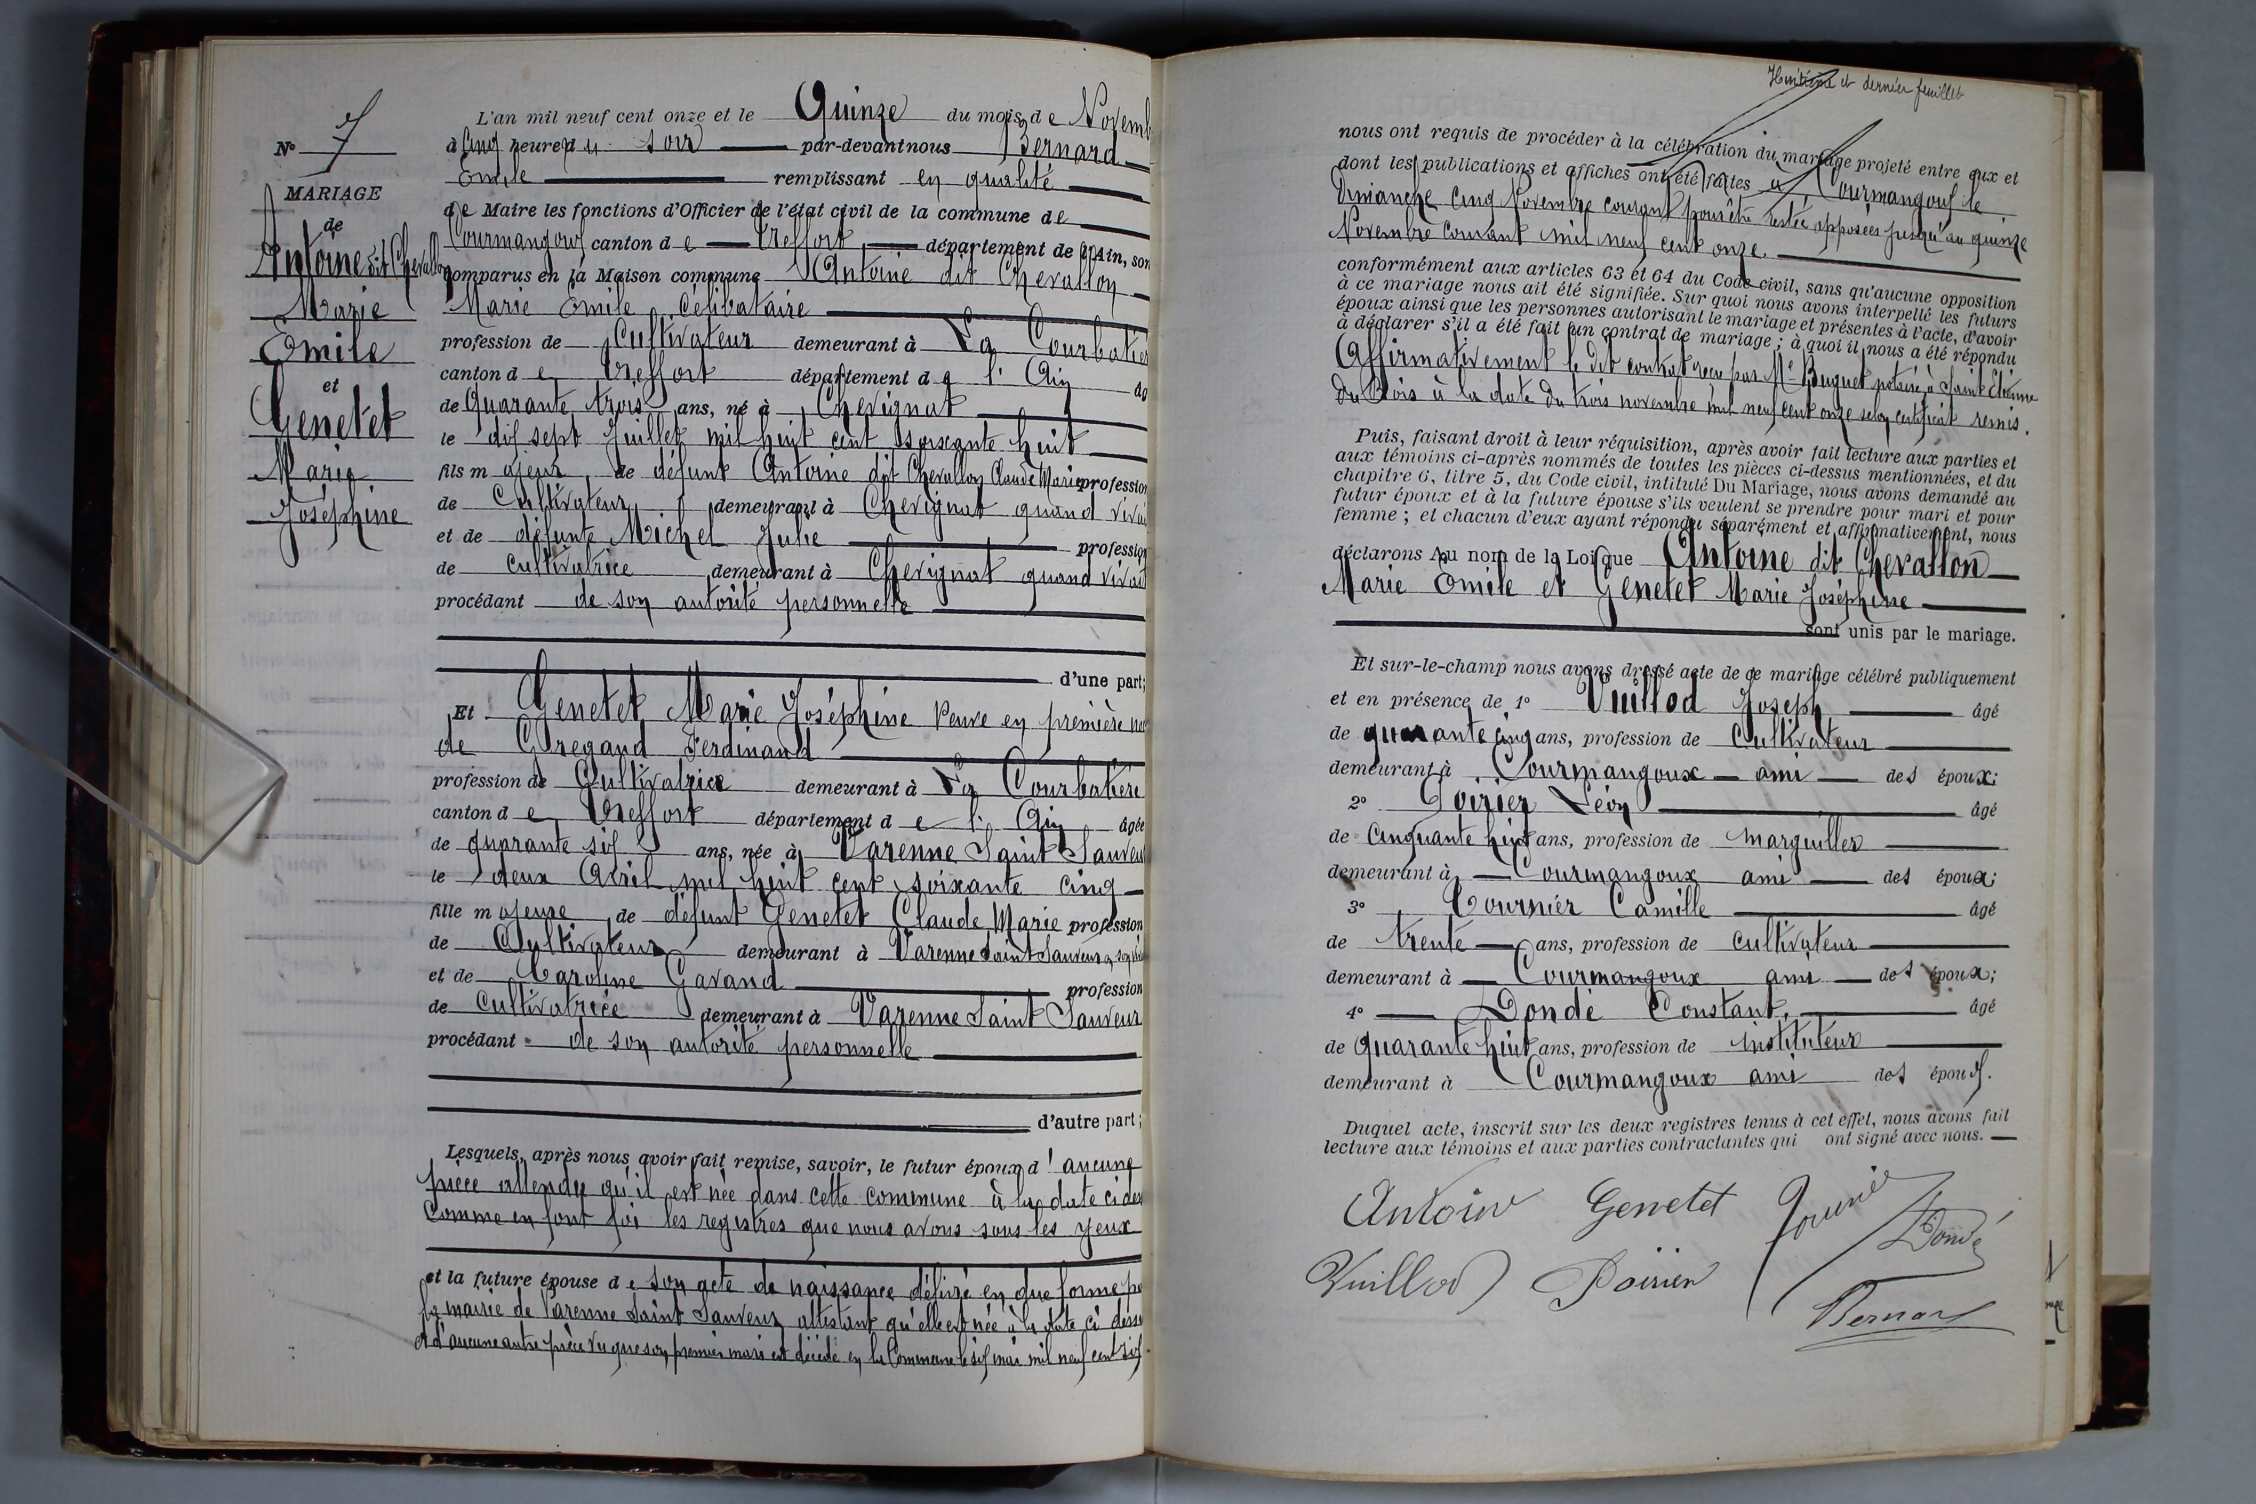 N° 7
MARIAGE
de
Antoine dit Chevallon
Marie
Emile
et
Genetet
Marie
Joséphine
L'an mil neuf cent onze et le Quinze du mois de Novemb
à Cinq heures du soir par-devant nous Bernard
Emile remplissant en qualité
de Maire les fonctions d'Officier de l'état civil de la commune de
Courmangoux canton de Treffort département de l'Ain, son
comparus en la Maison commune Antoine dit Chevallon
Marie Emile célibataire
profession de Cultivateur demeurant à La Courbatiè
canton de Treffort département de l'Ain âg
de Quarante trois ans, né à Chevignat
le dix sept Juillet mil huit cent soixante huit
fils majeur de défunt Antoine dit Chevallon Claude Marie profession
de Cultivateur demeurant à Chevignat quand viva
et de défunte Michel Julie profession
de cultivatrice demeurant à Chevignat quand vivait
procédant de son autorité personnelle
d'une part;
Et Genetet Marie Joséphine Veuve en première no
de Gregaud Ferdinand
profession de Cultivatrice demeurant à La Courbatière
canton de Treffort département de l'Ain âgée
de quarante six ans, née à Varenne Saint Sauveu
le deux Avril mil huit cent soixante cinq
fille majeure de défunt Genetet Claude Marie profession
de Cultivateur demeurant à Varenne Saint Sauveur
et de Caroline Gavand profession
de Cultivatrice demeurant à Varenne Saint Sauveur
procédant de son autorité personnelle
d'autre part;
Lesquels, après nous avoir fait remise, savoir, le futur époux d'aucune
pièce attendu qu'il est née dans cette commune à la date ci des
Comme en font foi les registres que nous avons sous les yeux
et la future épouse de son acte de naissance délivré en due forme pa
la mairie de Varenne Saint Sauveur attestant qu'elle est née à la date ci dessu
et d'aucune autre pièce vu que son premier mari est décédé en la Commune le six mai mil neuf cent six
Huitième et dernier feuillet
nous ont requis de procéder à la célébration du mariage projeté entre eux et
dont les publications et affiches ont été faites à Courmangoux le
Dimanche cinq Novembre courant pour être restée apposées jusqu'au quinze
Novembre courant mil neuf cent onze.
conformément aux articles 63 et 64 du Code civil, sans qu'aucune opposition
à ce mariage nous ait été signifiée. Sur quoi nous avons interpellé les futurs
époux ainsi que les personnes autorisant le mariage et présentes à l'acte, d'avoir
à déclarer s'il a été fait un contrat de mariage ; à quoi il nous a été répondu
Affirmativement le dit contrat reçu par Me Buguet notaire à Saint Etienne
du Bois à la date du trois novembre mil neuf cent onze selon certificat remis.
Puis, faisant droit à leur réquisition, après avoir fait lecture aux parties et
aux témoins ci-après nommés de toutes les pièces ci-dessus mentionnées, et du
chapitre 6, titre 5, du Code civil, intitulé Du Mariage, nous avons demandé au
futur époux et à la future épouse s'ils veulent se prendre pour mari et pour
femme ; et chacun d'eux ayant répondu séparément et affirmativement, nous
déclarons Au nom de la Loi que Antoine dit Chevallon
Marie Emile et Genetet Marie Joséphine
sont unis par le mariage.
Et sur-le-champ nous avons dressé acte de ce mariage célébré publiquement
et en présence de 1° Vuillod Joseph âgé
de quarante cinq ans, profession de Cultivateur
demeurant à Courmangoux ami des époux;
2° Poirier Léon âgé
de Cinquante huit ans, profession de marguiller
demeurant à Courmangoux ami des époux;
3° Tournier Camille âgé
de trente ans, profession de cultivateur
demeurant à Courmangoux ami des époux;
4° Dondé Constant, âgé
de quarante huit ans, profession de instituteur
demeurant à Courmangoux ami des époux.
Duquel acte, inscrit sur les deux registres tenus à cet effet, nous avons fait
lecture aux témoins et aux parties contractantes qui ont signé avec nous.
Antoine Genetet Tournier
Dondé
Vuillod Poirier
Bernard